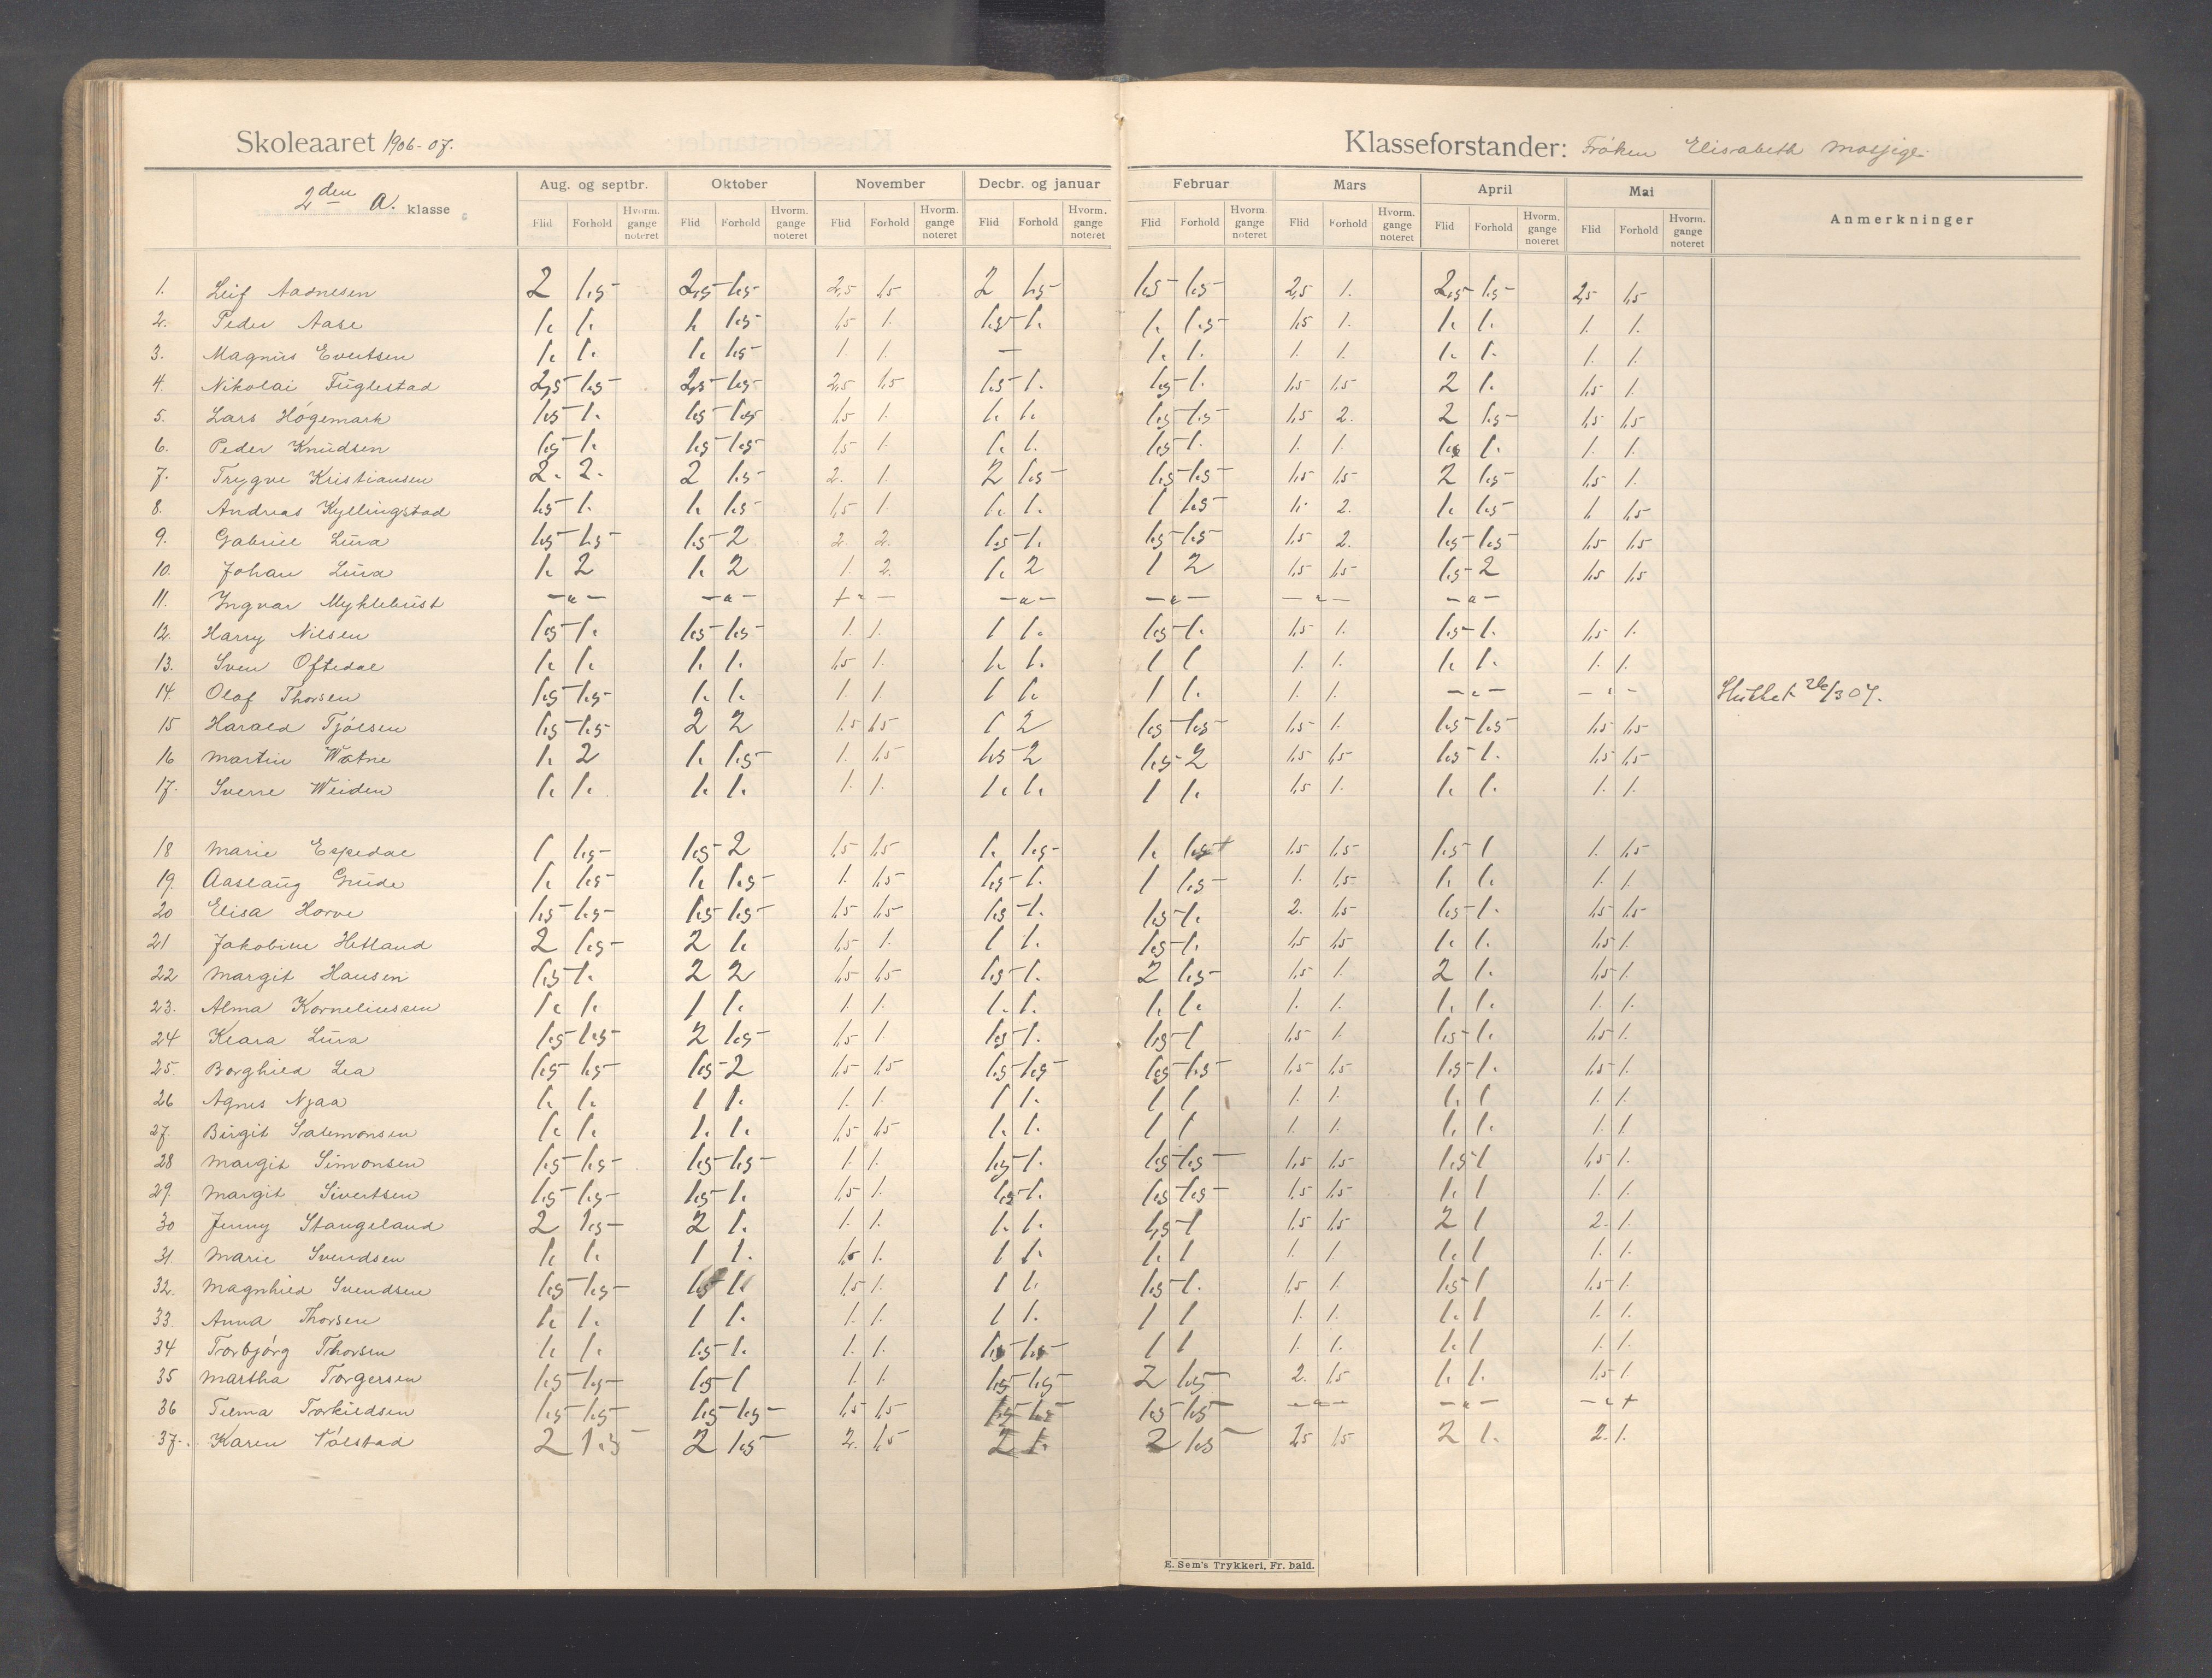 Skoleaaret 1906-07.
Klasseforstander: Frøken Elisabeth
2den A. klasse
Aug. og septbr. Oktober November Decbr. og januar Februar Mars April Mai Anmerkninger
Flid Forhold Hvorm. gange noteret Flid Forhold Hvorm. gange noteret Flid Forhold Hvorm. gange noteret Flid Forhold Hvorm. gange noteret Flid Forhold Hvorm. gange noteret Flid Forhold Hvorm. gange noteret Flid Forhold Hvorm. gange noteret Flid Forhold Hvorm. gange noteret
1. Leif Aadnesen 2 1,5 2,5 1,5 2,5 1,5 2 1,5 1,5 1,5 2,5 1. 2,5 1,5 2,5 1,5
2. Peder Aase 1. 1. 1. 1,5 1,5 1. 1,5 1. 1. 1,5 1,5 1. 1. 1. 1. 1.
3. Magnus Evertsen 1. 1. 1. 1,5 1. 1. — 1. 1. 1. 1. 1. 1. 1. 1.
4. Nikolai Fuglestad 2,5 1,5 2,5 1,5 2,5 1,5 1,5 1. 1,5 1. 1,5 1,5 2 1. 1,5 1.
5. Lars Høgemark 1,5 1. 1,5 1,5 1,5 1. 1. 1. 1,5 1,5 1,5 2. 2 1,5 1,5 1,5
6. Peder Knudsen 1,5 1. 1,5 1,5 1,5 1. 1. 1. 1,5 1. 1. 1. 1. 1. 1. 1.
7. Trygve Kristiansen 2. 2. 2 1,5 2. 1. 2 1,5 1,5 1,5 1,5 1,5 2 1,5 1,5 1.
8. Andreas Kyllingstad 1,5 1. 1. 1,5 1,5 1. 1. 1. 1 1,5 1. 2. 1. 1,5 1 1,5
9. Gabriel Lura 1,5 1,5 1,5 2 2. 2. 1,5 1. 1,5 1,5 1,5 2. 1,5 1,5 1,5 1,5
10. Johan Lura 1. 2 1. 2 1. 2. 1. 2 1 2 1,5 1,5 1,5 2 1,5 1,5
11. Ingvar Myklebust — " — — " — — " — — " — — " — — " — — " —
12. Harry Nilsen 1,5 1. 1,5 1,5 1. 1. 1 1. 1,5 1. 1,5 1. 1,5 1. 1,5 1.
13. Sven Oftedal 1. 1. 1. 1. 1,5 1. 1. 1. 1 1 1. 1. 1. 1. 1. 1.
14. Olaf Thorsen 1,5 1,5 1. 1. 1. 1. 1 1. 1 1. 1. 1. — " — — " — Sluttet 26/3 07.
15 Harald Tjølsen 1,5 1,5 2 2 1,5 1,5 1 2 1,5 1,5 1,5 1. 1,5 1,5 1,5 1,5
16 Martin Watne 1. 2 1. 1,5 1. 1,5 1,5 2 1,5 2 1,5 1,5 1,5 1. 1,5 1,5
17. Sverre Weiden 1. 1. 1. 1. 1. 1. 1. 1. 1 1. 1,5 1. 1. 1. 1. 1.
18 Marie Espedal 1 1,5 1,5 2 1,5 1,5 1. 1,5 1. 1,5 1,5 1,5 1,5 1 1. 1,5
19. Aaslaug Grude 1. 1,5 1. 1,5 1. 1,5 1,5 1. 1 1,5 1. 1,5 1. 1. 1. 1.
20 Elisa Horve 1,5 1,5 1,5 1,5 1,5 1,5 1,5 1. 1,5 1. 2. 1,5 1,5 1. 1,5 1,5
21 Jakobine Hetland 2 1,5 2 1. 1,5 1. 1 1. 1,5 1. 1,5 1,5 1. 1. 1,5 1.
22 Margit Hansen 1,5 1. 2 2 1,5 1,5 1,5 1. 2 1,5 1,5 1. 2 1. 1,5 1.
23. Alma Korneliussen 1. 1. 1 1. 1. 1. 1. 1. 1. 1. 1. 1. 1. 1. 1. 1.
24 Klara Lura 1,5 1,5 2 1,5 1,5 1. 1,5 1. 1,5 1 1,5 1. 1,5 1. 1,5 1.
25. Borghild Lea 1,5 1,5 1,5 2 1,5 1,5 1,5 1,5 1,5 1,5 1,5 1,5 1,5 1. 1,5 1.
26 Agnes Njaa 1. 1. 1 1. 1. 1. 1 1. 1 1 1. 1. 1. 1 1. 1.
27. Birgit Salomonsen 1. 1. 1. 1. 1,5 1,5 1. 1. 1 1 1. 1. 1. 1. 1. 1
28 Margit Simonsen 1,5 1,5 1,5 1,5 1. 1. 1,5 1. 1,5 1,5 1,5 1,5 1,5 1 1,5 1.
29. Margit Sivertsen 1,5 1,5 1,5 1. 1,5 1. 1,5 1. 1,5 1,5 1,5 1,5 1. 1 1. 1.
30 Jenny Stangeland 2 1,5 2 1. 1. 1. 1. 1. 1,5 1 1,5 1,5 2 1 2. 1.
31. Marie Svendsen 1. 1. 1 1. 1,5 1. 1 1. 1. 1 1. 1. 1. 1 1. 1.
32. Magnhild Svendsen 1,5 1,5 1,5 1. 1,5 1. 1 1. 1,5 1. 1,5 1. 1,5 1 1,5 1.
33. Anna Thorsen 1. 1. 1 1. 1. 1. 1 1. 1 1 1. 1. 1. 1 1. 1.
34 Torbjørg Thorsen 1. 1. 1,5 1. 1. 1. 1,5 1,5 1 1 1. 1. 1. 1 1. 1.
35 Martha Torgersen 1,5 1,5 1,5 1 1. 1. 1,5 1,5 2 1,5 2. 1,5 1. 1. 1,5 1
36 Tilma Torkildsen 1,5 1,5 1,5 1,5 1,5 1,5 1,5 1,5 1,5 1,5 — " — — " — — " —
37. Karen Tølstad 2 1,5 2 1,5 2. 1,5 2 1. 2 1,5 2,5 1,5 2 1. 2. 1.
E. Sem's Trykkeri, Fr. hald.